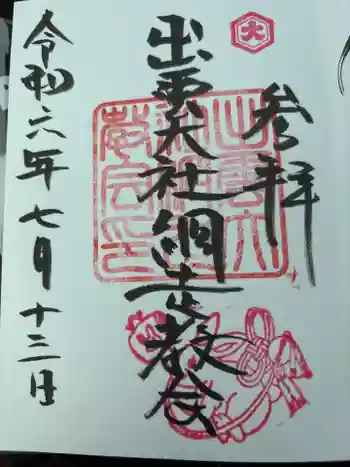 大
参拝
出雲大社網走教会
令和六年七月十三日